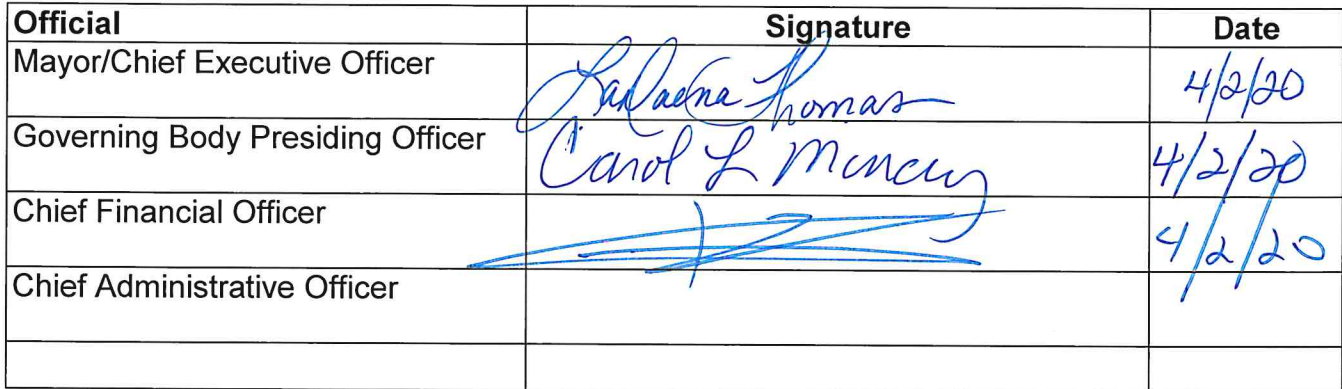 Official Signature Date
Mayor/Chief Executive Officer LaDaena Thomas 4/2/20
Governing Body Presiding Officer Carol L Muncey 4/2/20
Chief Financial Officer 4/2/20
Chief Administrative Officer